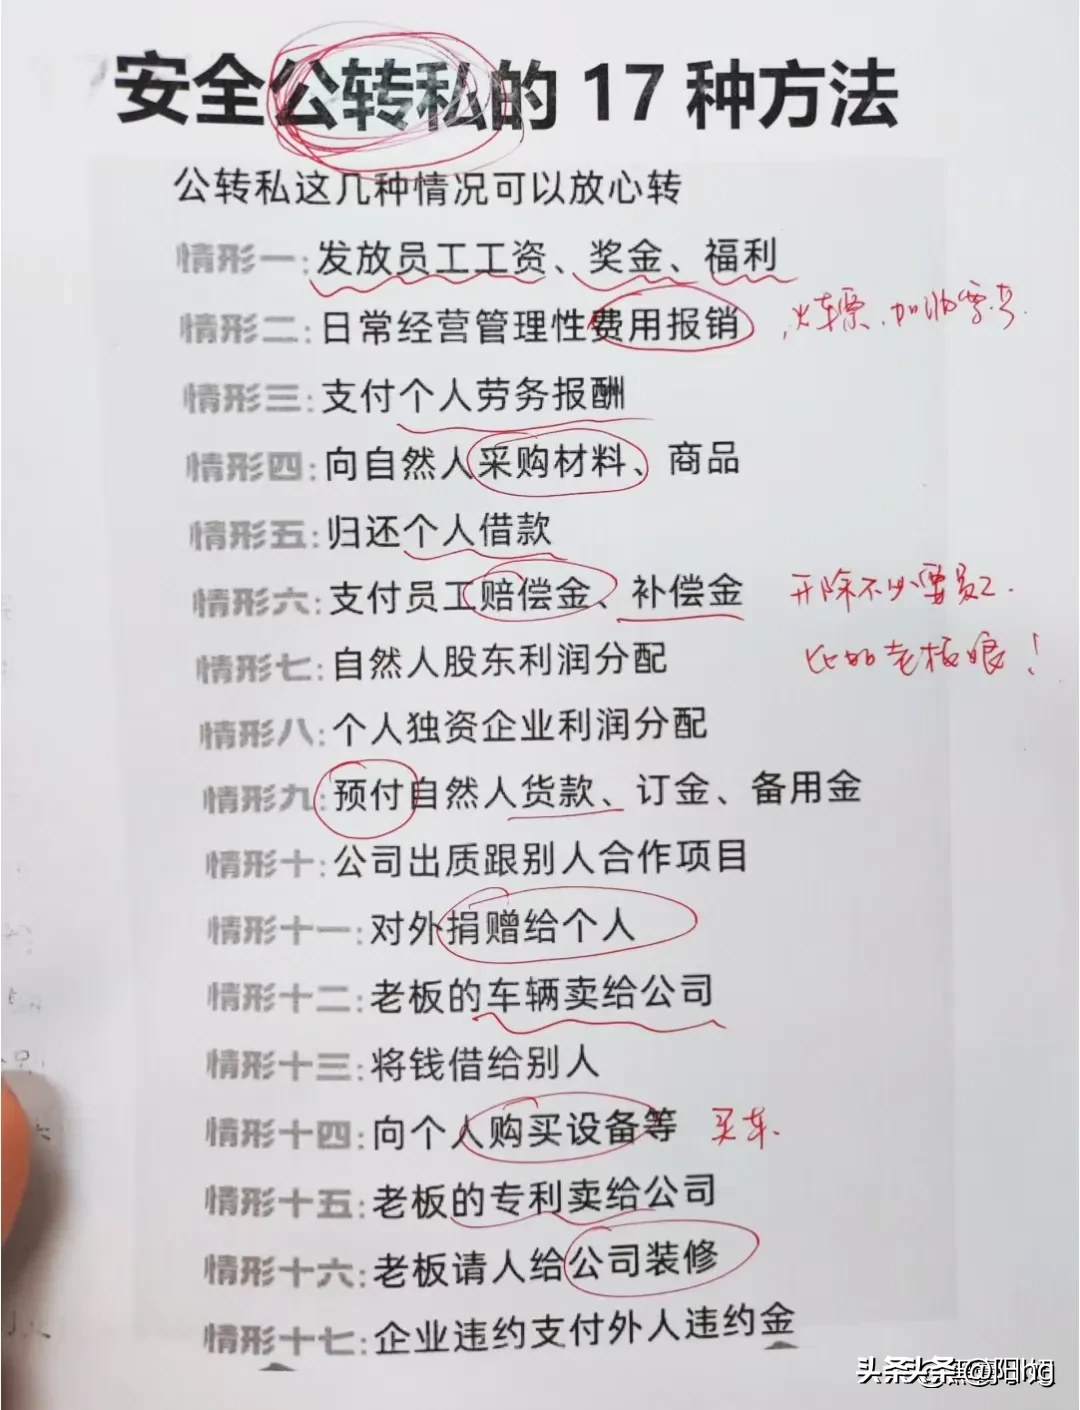 安全公转私的 17 种方法
公转私这几种情况可以放心转
情形一:发放员工工资、奖金、福利
情形二:日常经营管理性费用报销 火车票、加油票等.
情形三:支付个人劳务报酬
情形四:向自然人采购材料、商品
情形五:归还个人借款
情形六:支付员工赔偿金、补偿金 开除不必要员工.
比如老板娘!
情形七:自然人股东利润分配
情形八:个人独资企业利润分配
情形九:预付自然人货款、订金、备用金
情形十:公司出质跟别人合作项目
情形十一:对外捐赠给个人
情形十二:老板的车辆卖给公司
情形十三:将钱借给别人
情形十四:向个人购买设备等 买车.
情形十五:老板的专利卖给公司
情形十六:老板请人给公司装修
情形十七:企业违约支付外人违约金
头条